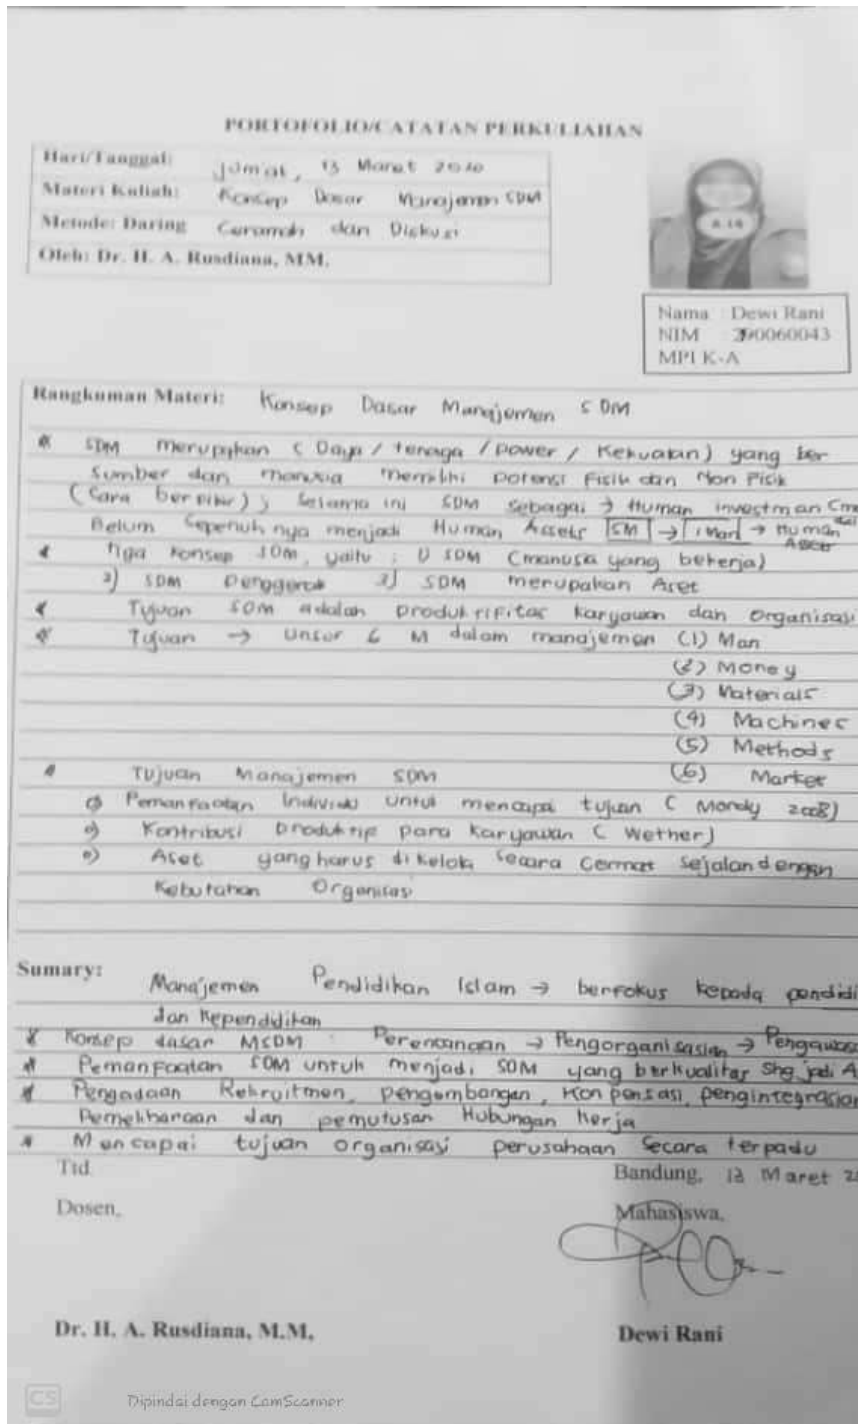 PORTOFOLIO/CATATAN PERKULIAHAN
Hari/Tanggal: Jum'at, 13 Maret 2020
Materi Kuliah: Konsep Dasar Manajemen SDM
Metode: Daring Ceramah dan Diskusi
Oleh: Dr. H. A. Rusdiana, MM.
A.14
Nama : Dewi Rani
NIM 290060043
MPI K-A
Rangkuman Materi: Konsep Dasar Manajemen SDM
* SDM merupakan (Daya / tenaga / power / Kekuatan) yang ber
Sumber dan manusia memiliki potensi Fisik dan Non Pisik
(Cara berpikir); Selama ini SDM sebagai → Human investman
Belum Sepenuhnya menjadi Human Assets SM → Man → Human Asset
* tiga konsep SDM, yaitu : 1) SDM (manusia yang bekerja)
2) SDM Penggerak 3) SDM merupakan Aset
* Tujuan SDM adalah produktifitas karyawan dan organisasi
* Tujuan → Unsur 6 M dalam manajemen (1) Man
(2) Money
(3) Materials
(4) Machines
(5) Methods
* Tujuan Manajemen SDM (6) Market
Pemanfaatan Individu untuk mencapai tujuan (Mondy 2008)
Kontribusi produktip para karyawan (Wether)
Aset yang harus di kelola secara cermat sejalan dengan
Kebutuhan Organisasi
Sumary: Manajemen Pendidikan Islam → berfokus kepada pendidi
dan kependidikan
* Konsep dasar MSDM : Perencanaan → Pengorganisasian → Pengawasa
* Pemanfaatan SDM untuk menjadi SDM yang berkualitas Shg jadi A
* Pengadaan Rekruitmen, pengembangan, Konpensasi, pengintegrasian
Pemeliharaan dan pemutusan Hubungan kerja
* Mencapai tujuan organisasi perusahaan secara terpadu
Ttd. Bandung, 13 Maret 2
Dosen, Mahasiswa,
Dr. H. A. Rusdiana, M.M. Dewi Rani
CS Dipindai dengan CamScanner